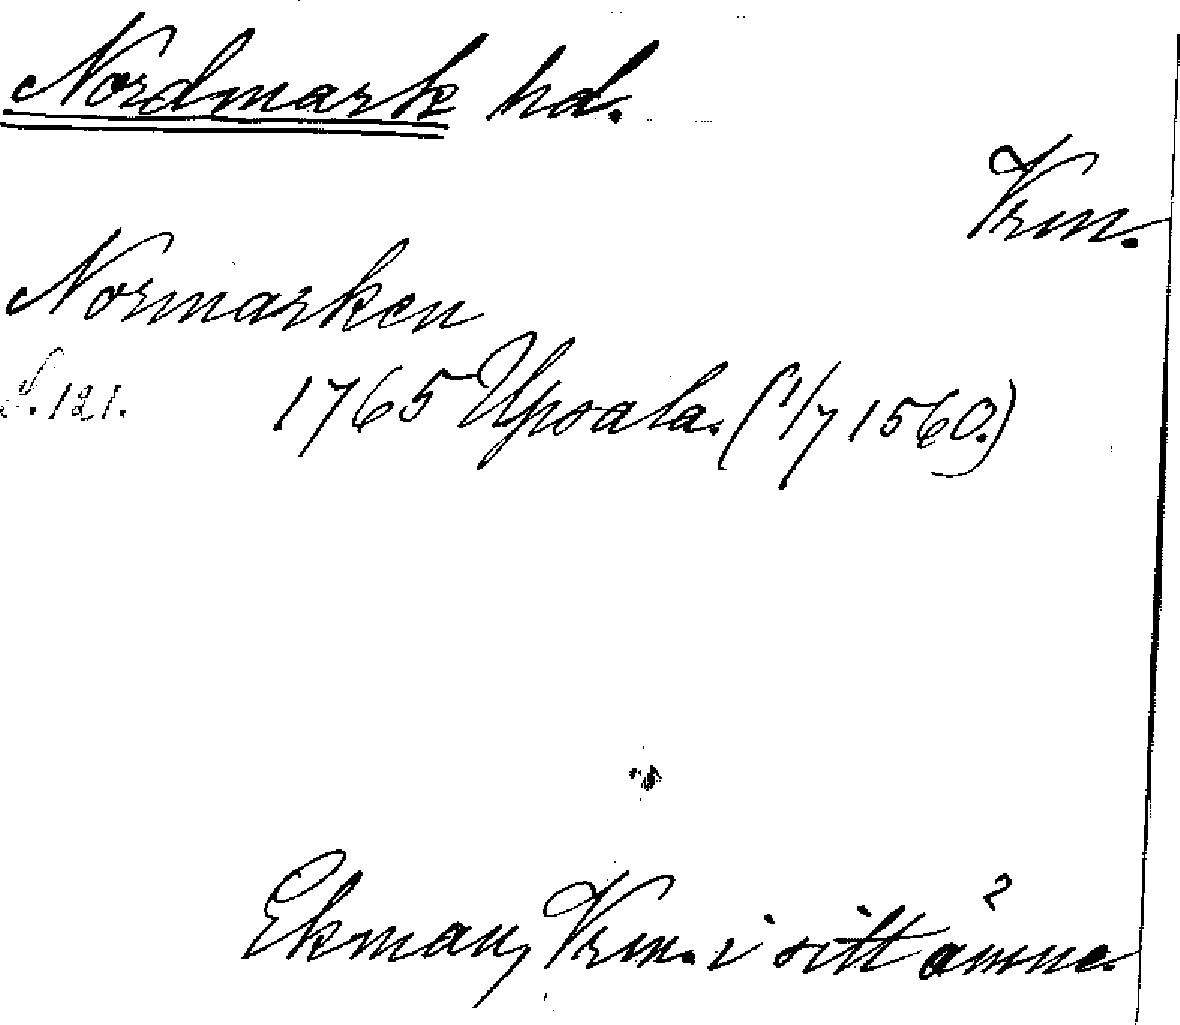 Nordmark hd.
Vrm.
Normarken
S. 121. 1765 Upsala. (1/7 1560.)
Ekman, Vrm. i sitt ämne.